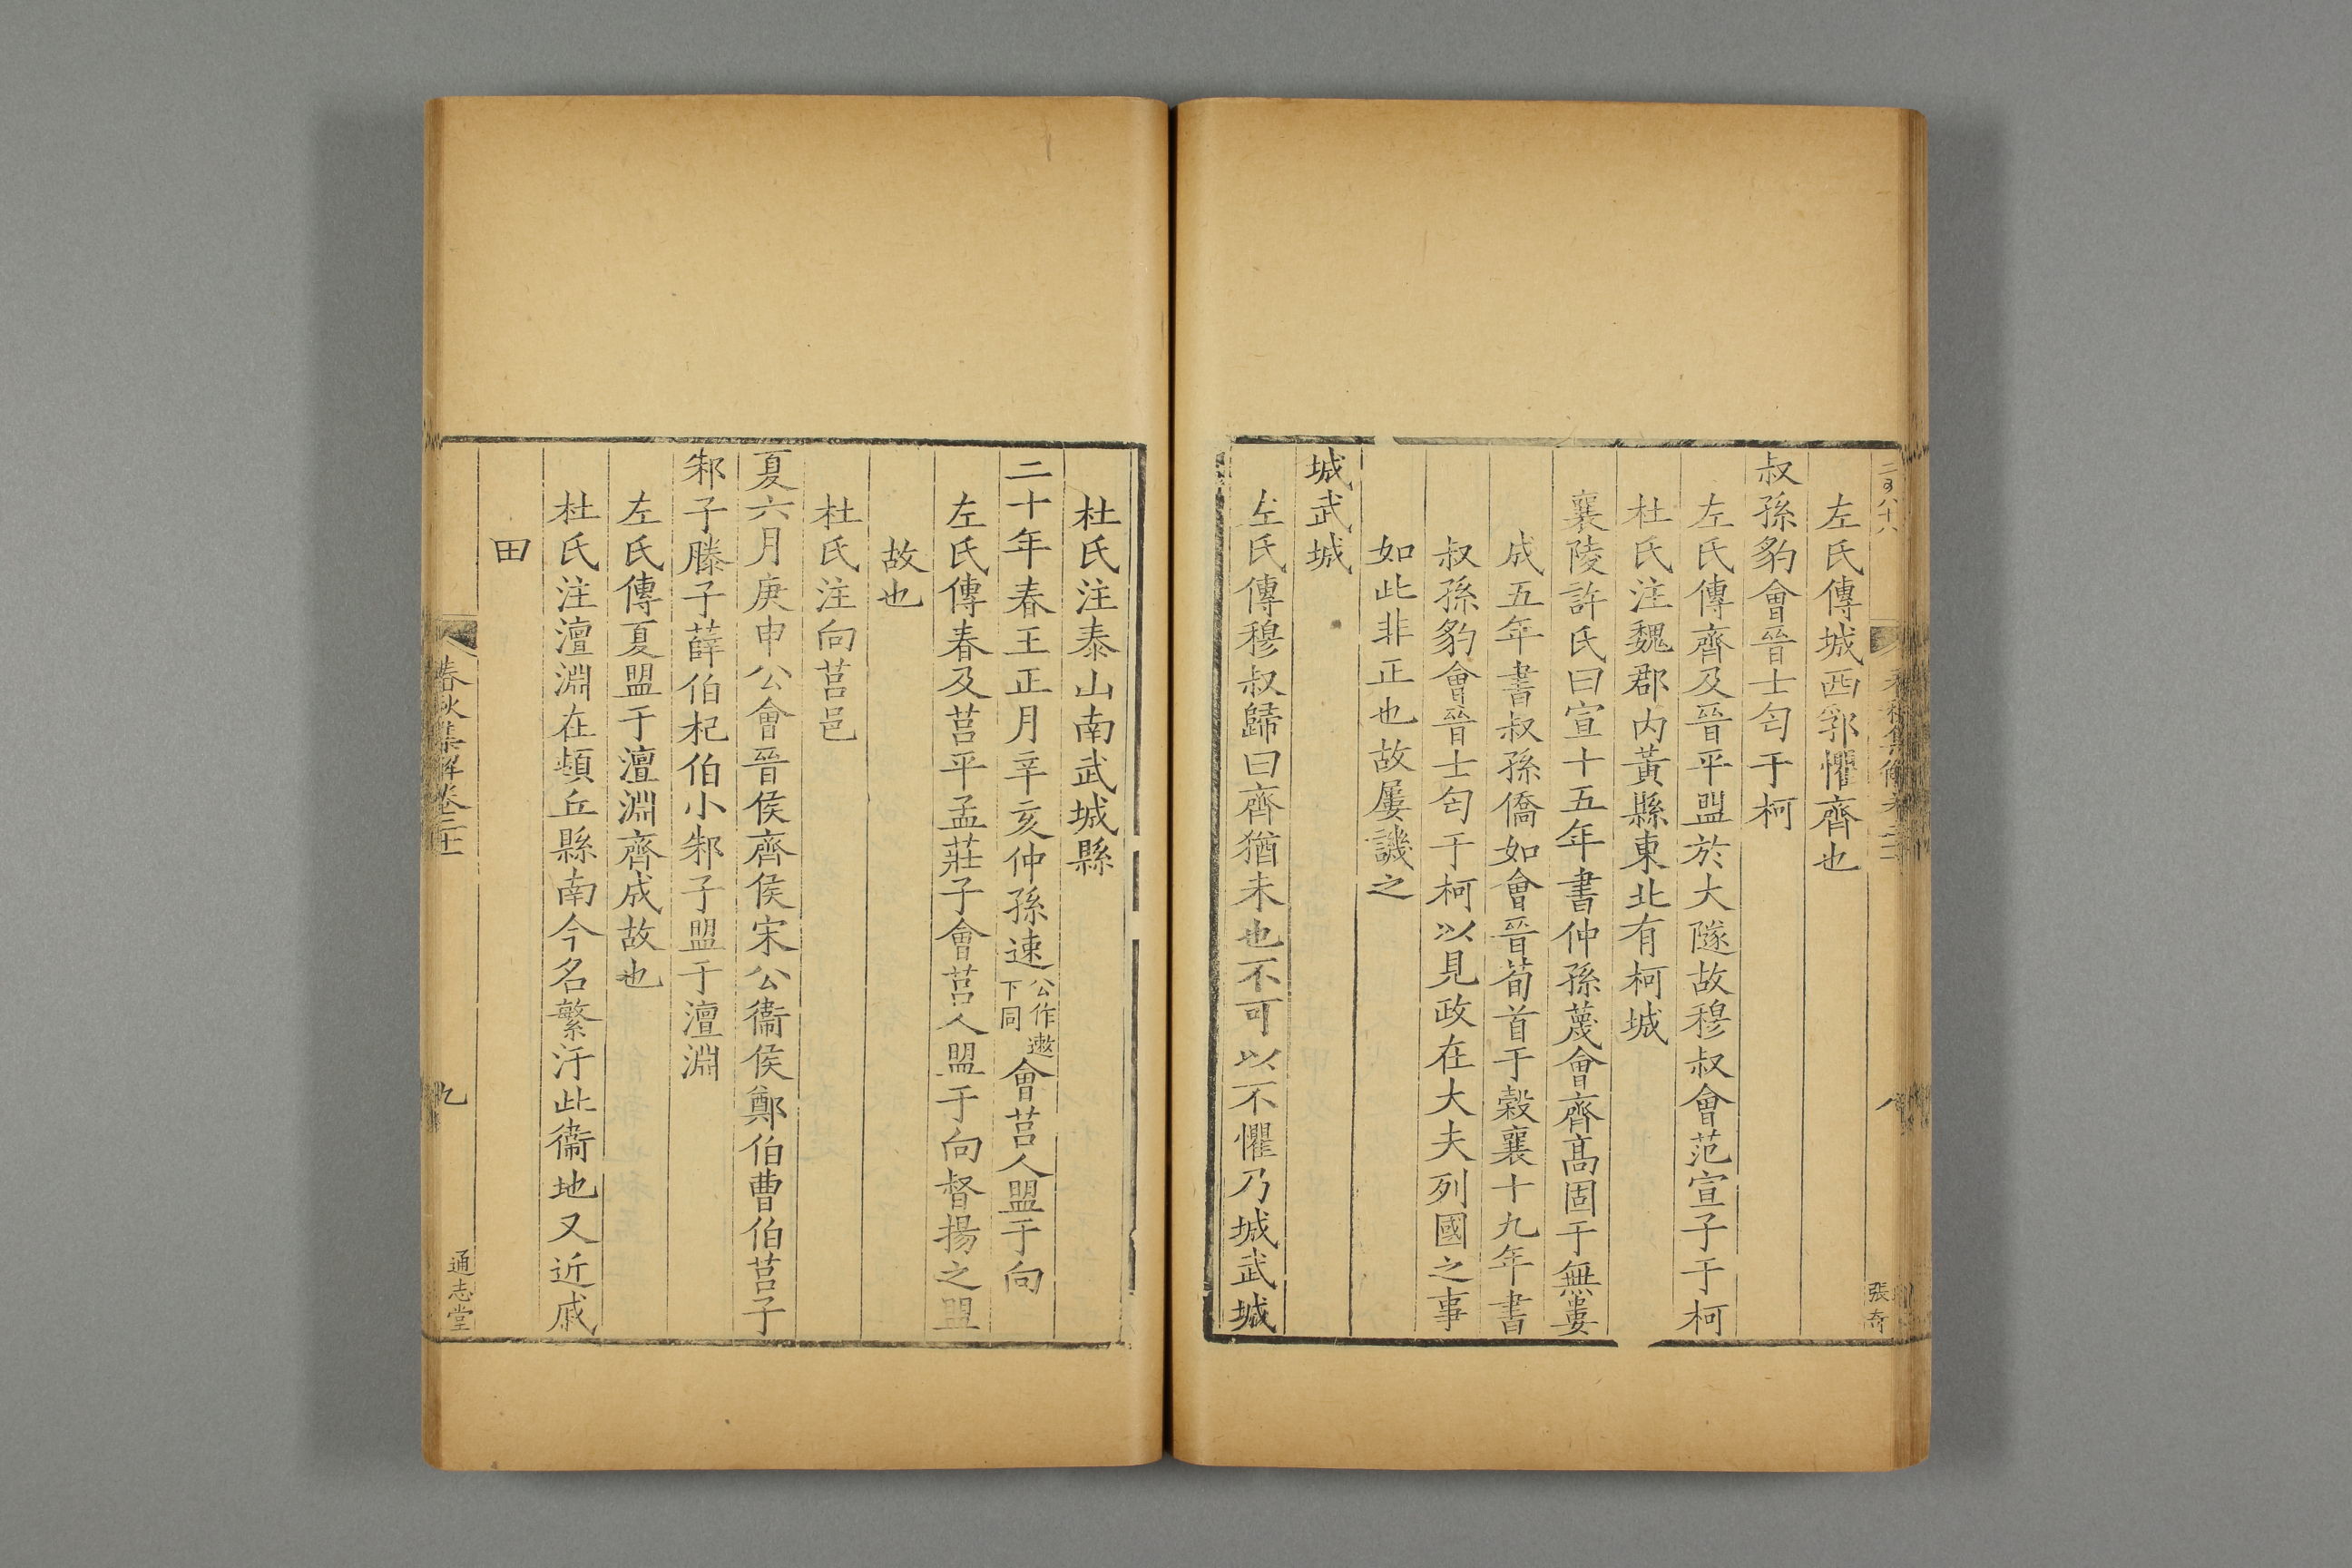 左氏傳城西郛懼齊也
叔孫豹會晉士匄于柯
左氏傳齊及晉平盟於大隧故穆叔會范宣子于柯
杜氏注魏郡内黃縣東北有柯城
襄陵許氏曰宣十五年書仲孫蔑會齊髙固于無婁
成五年書叔孫僑如會晉荀首于榖襄十九年書
叔孫豹會晉士匄于柯以見政在大夫列國之事
如此非正也故屢譏之
城武城
左氏傳穆叔歸曰齊猶未也不可以不懼乃城武城
張奇
杜氏注泰山南武城縣
二十年春王正月辛亥仲孫速公作遫下同會莒人盟于向
左氏傳春及莒平孟莊子會莒人盟于向督揚之盟
故也
杜氏注向莒邑
夏六月庚申公會晉侯齊侯宋公衞侯鄭伯曹伯莒子
邾子滕子薛伯杞伯小邾子盟于澶淵
左氏傳夏盟于澶淵齊成故也
杜氏注澶淵在頓丘縣南今名繁汙此衞地又近戚
田
春秋集解卷二十一
九
通志堂